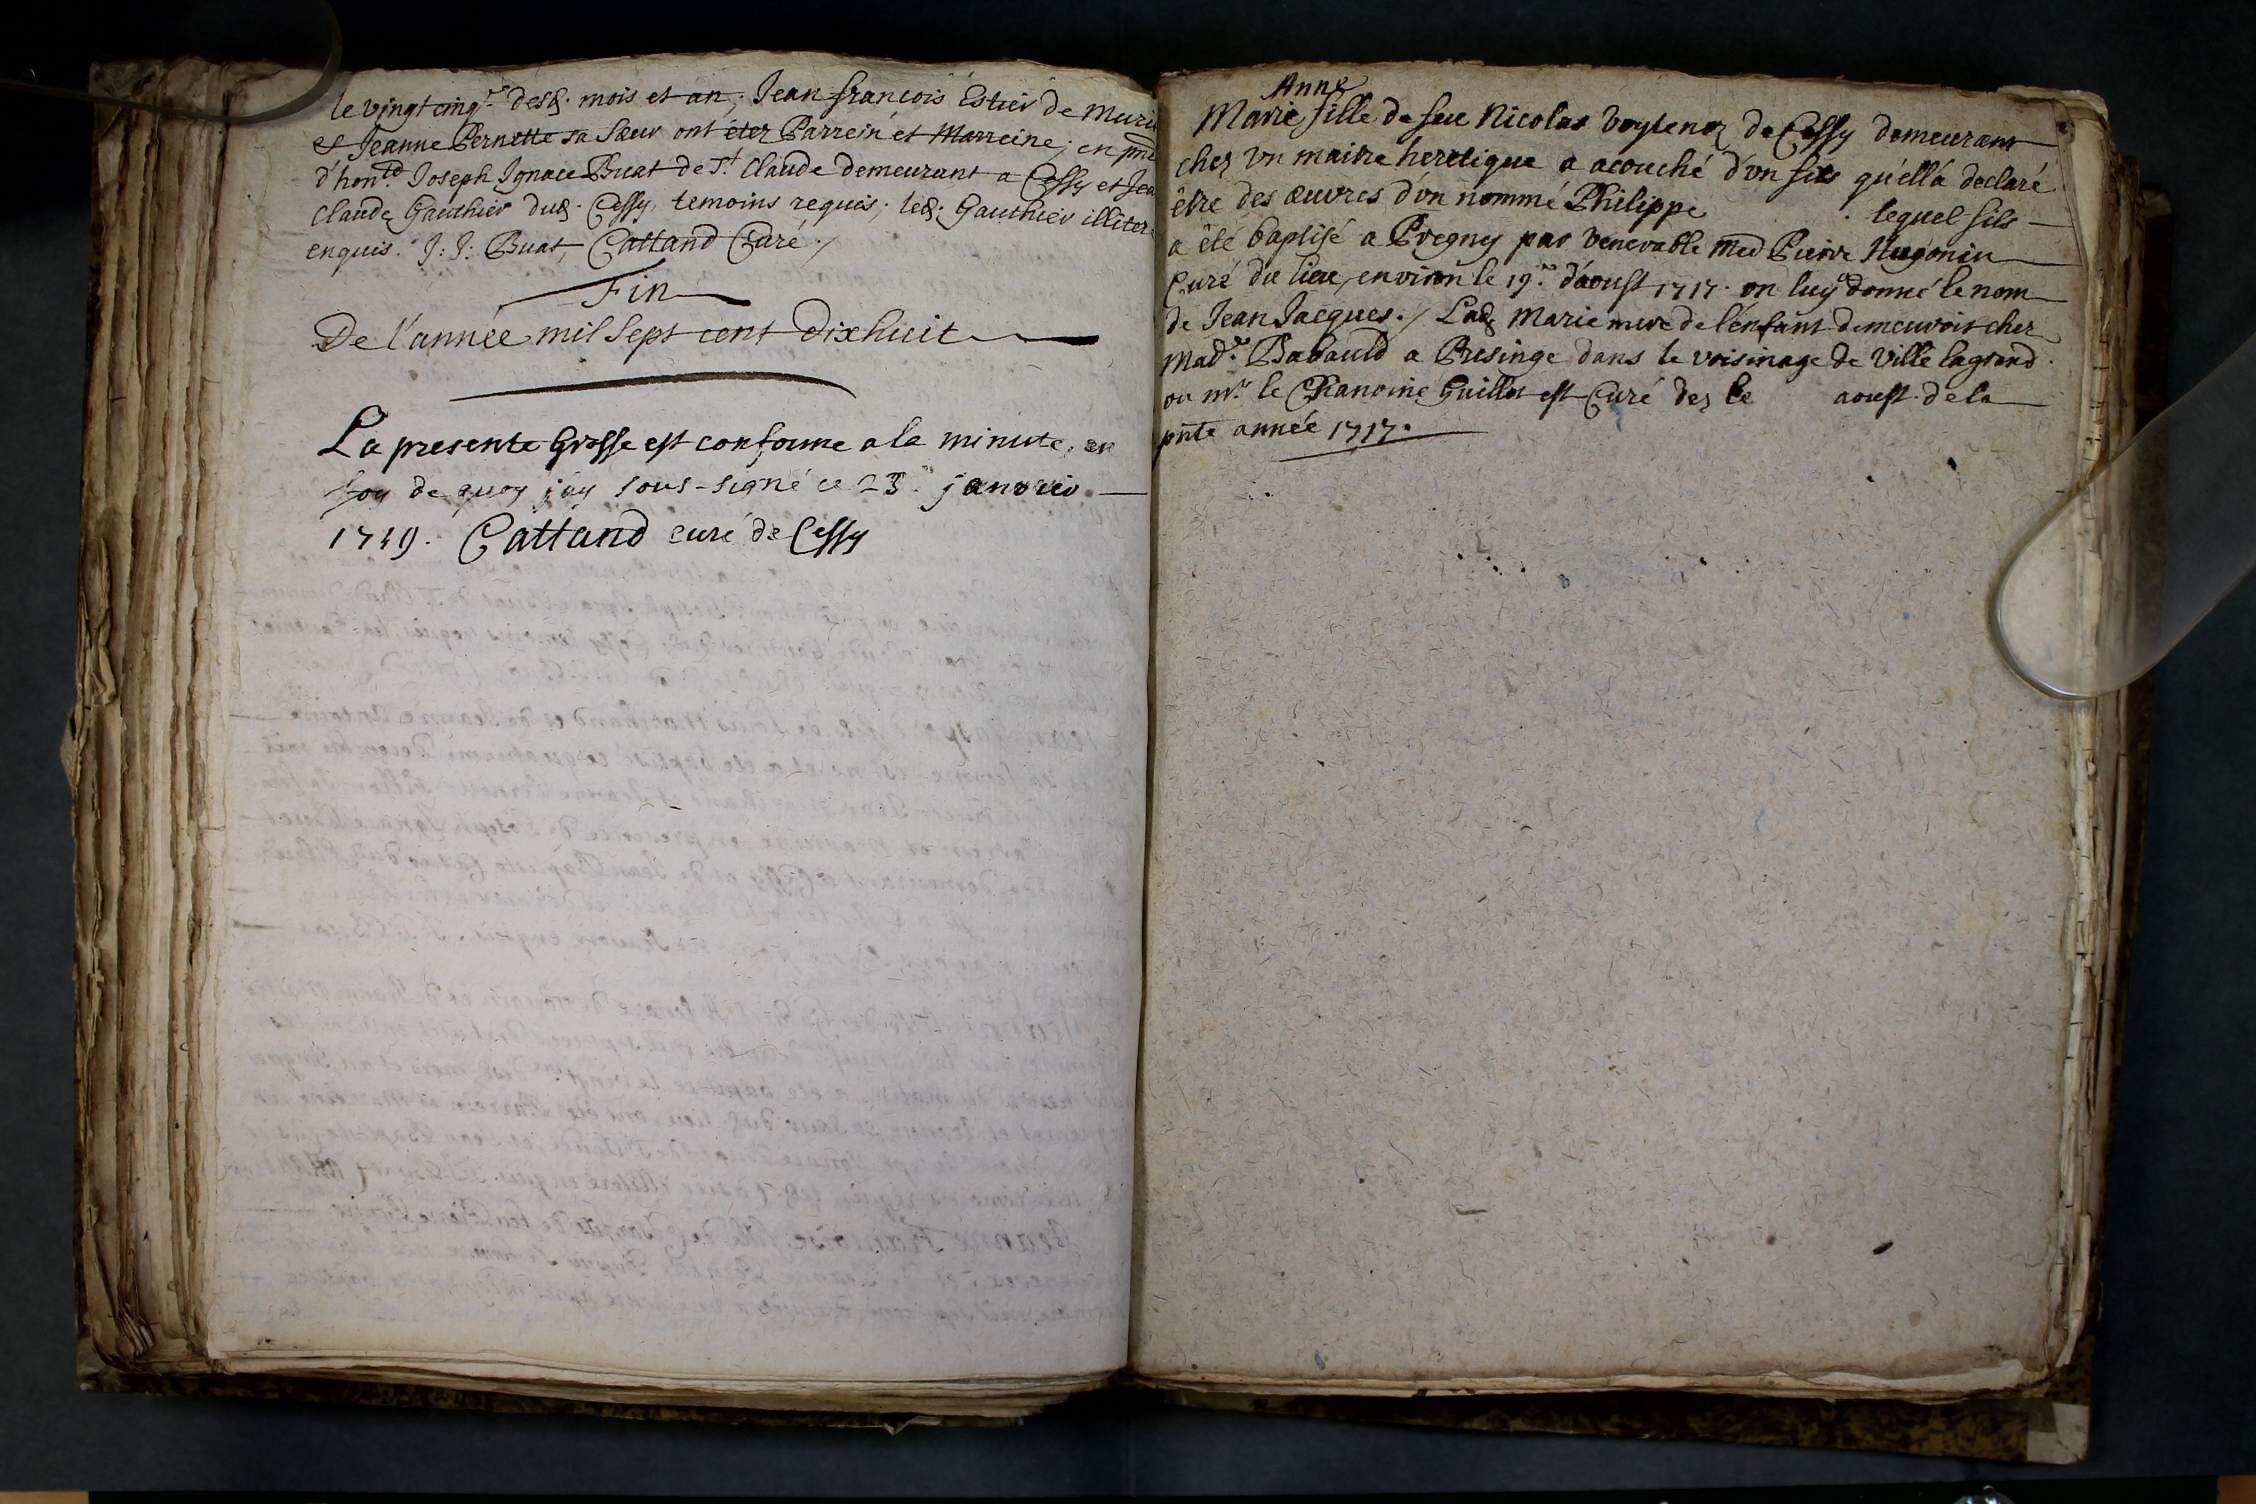 le vingt cinq.e desd. mois et an; Jean françois Estier de
et Jeanne Pernette sa sœur ont étez Parrein et Marreine; en pnce
d'honte. Joseph Ignace Buat de St. Claude demeurant a Cessy et
Claude Gauthier dud. Cessy, temoins requis; led. Gauthier
enquis. J: J: Buat, Cattand Curé./
Fin
De l'année mil sept cent dixhuit
La presente Grosse est conforme a la minute, en
foy de quoy jay sous-signé ce 23.e janvier
1719. Cattand curé de Cessy
Anne
Marie fille de feu Nicolas de Cessy demeurant
chez vn maitre heretique a acouché d'vn fils qu'ell'a declaré
être des œuvres d'vn nommé Philippe . lequel fils
a êté baptisé a Pregny par venerable Pierre Hugonin
Curé du lieu, environ le 19.e d'aoust 1717. on luy a donné le nom
de Jean Jacques./ Lad. Marie mere de l'enfant demeuroit chez
Made. Babauld a Presinge dans le voisinage de Ville lagrand.
ou mr. le Chanoine Guillot est Curé dez le aoust de la
pnte année 1717.